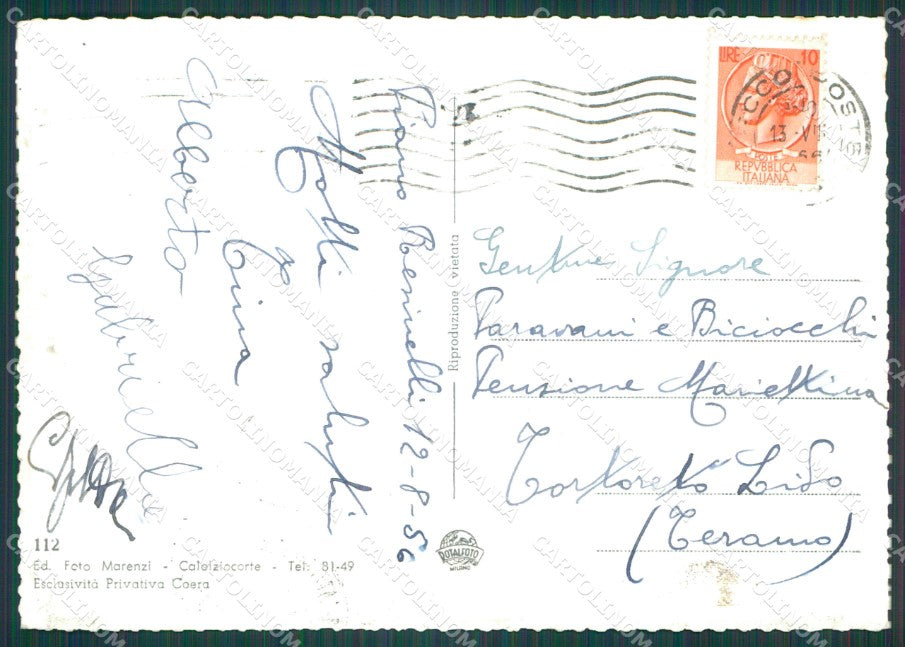 Piano Rencinelli 12-8-56
Molti saluti
Tina
Alberto
Gabriella
Gentme Signore
Paravani e Biciocchi
Pensione Mariettina
Tortoreto Lido
(Teramo)
LIRE 10
POSTE
REPVBBLICA
ITALIANA
13 · VIII
Riproduzione vietata
TOTALFOTO
MILANO
112
Ed. Foto Marenzi - Calolziocorte - Tel. 81-49
Esclusività Privativa Coera
CARTOLINOMANIA